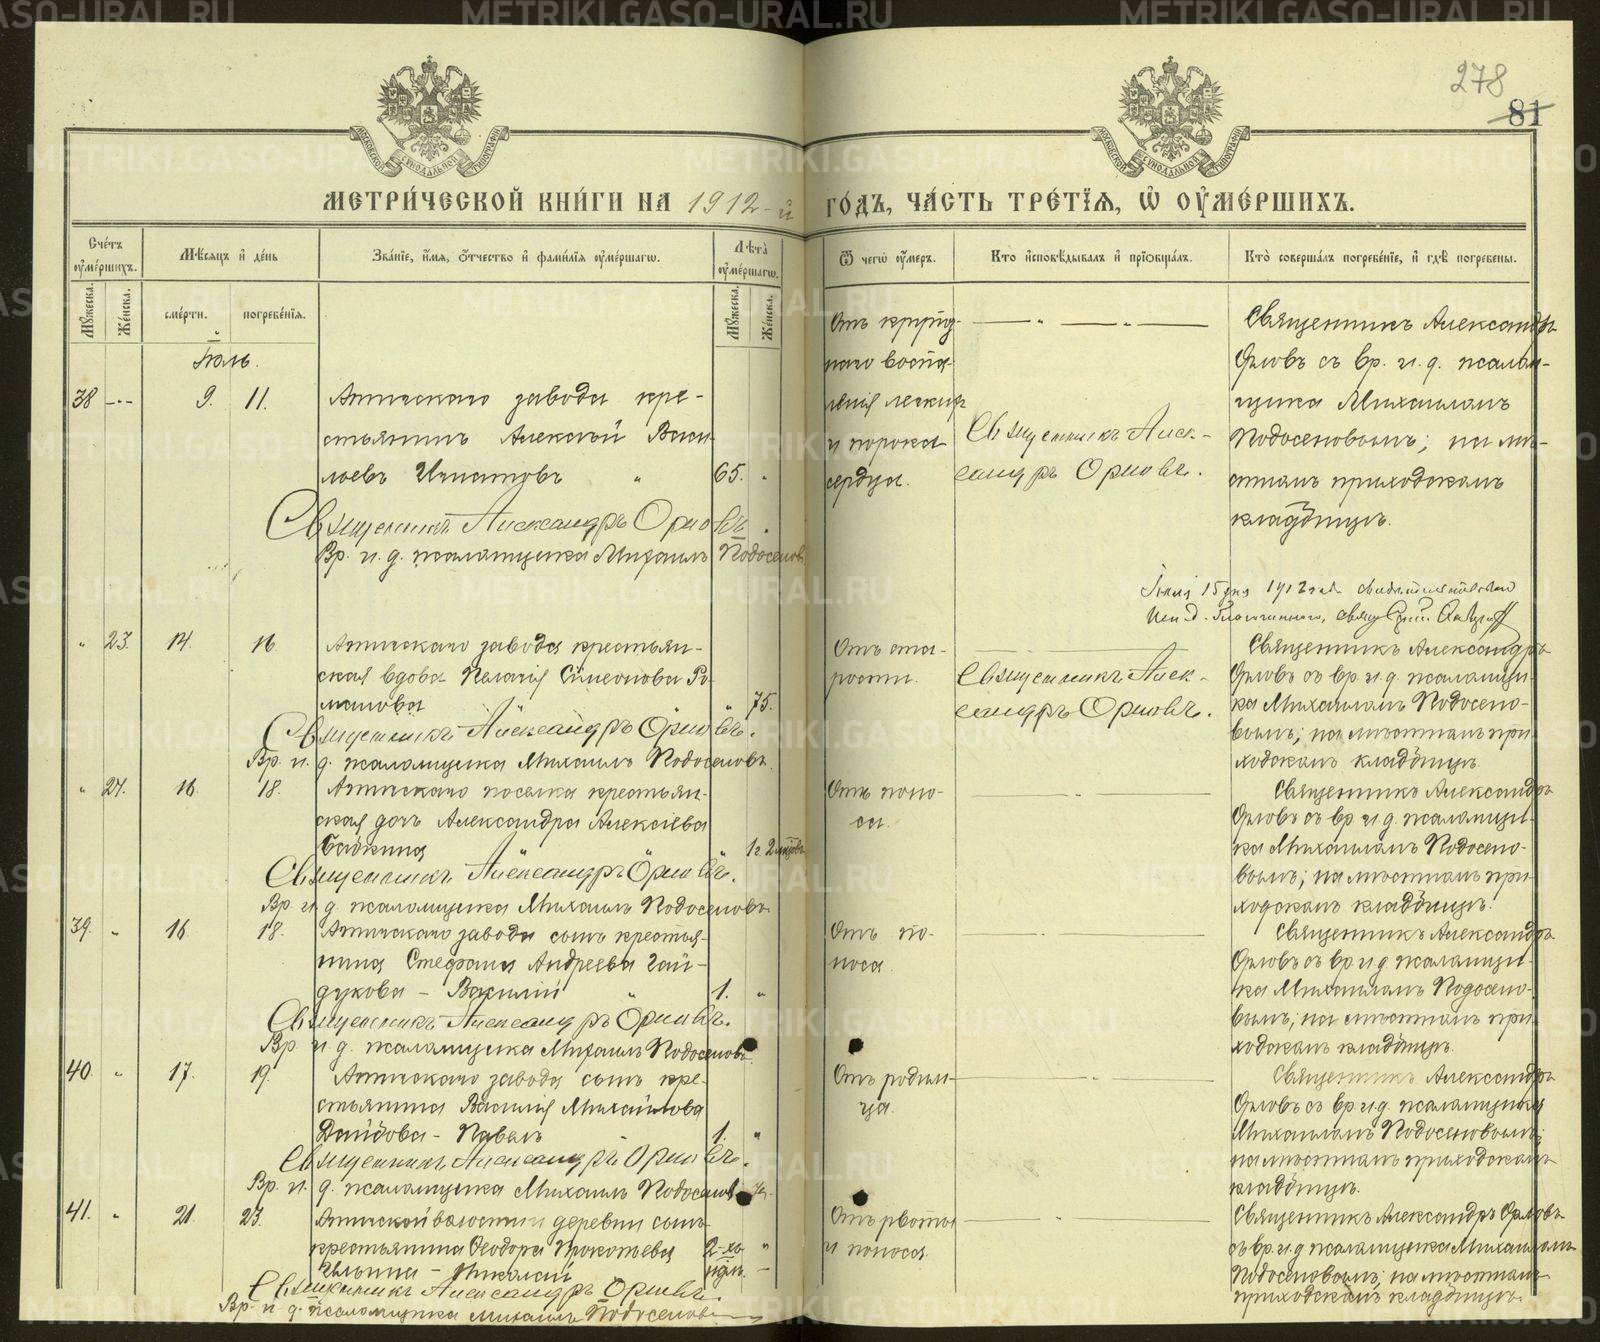 278
81
МОСКОВСКОЙ СѴНОДАЛЬНОЙ ТИПОГРАФІИ
МОСКОВСКОЙ СѴНОДАЛЬНОЙ ТИПОГРАФІИ
МЕТРИ́ЧЕСКОЙ КНИ́ГИ НА 1912-й ГО́ДЪ, ЧА́СТЬ ТРЕ́ТЇѦ, Ѽ ОУМЕ́РШИХЪ.
Сче́тъ оуме́ршихъ.
Мѣ́сѧцъ и҆ де́нь
Зва́нїе, и҆́мѧ, ѻ҆́тчество и҆ фами́лїѧ оуме́ршагѡ.
Лѣ́та оуме́ршагѡ.
Ѿ чегѡ̀ оу҆́меръ.
Кто̀ и҆сповѣ́дывалъ и҆ прїѻбща́лъ.
Кто̀ соверша́лъ погребе́нїе, и҆ гдѣ̀ погребены̀.
Мꙋ́жеска. Же́нска.
сме́рти. погребе́нїѧ.
Мꙋ́жеска. Же́нска.
Іюль.
38 9. 11.
Ачитскаго завода кре-
стьянинъ Алексѣй Васи
льевъ Игнатовъ 65.
Священникъ Александръ Орловъ.
Вр. и. д. псаломщика Михаилъ Подосеновъ
Отъ крупоз-
наго воспа-
ленія легкихъ
и порока
сердца.
Священникъ Алек-
сандръ Орловъ.
Священникъ Александръ
Орловъ съ вр. и. д. псалом-
щика Михаиломъ
Подосеновымъ; на мѣ-
стномъ приходскомъ
кладбищѣ.
Іюля 15 дня 1912 года свидѣтельствовалъ
23. 14. 16.
Ачитскаго завода крестьян-
ская вдова Пелагія Симеонова Ро-
манова 75.
Священникъ Александръ Орловъ.
Вр. и. д. псаломщика Михаилъ Подосеновъ.
Отъ ста-
рости.
Священникъ Алек-
сандръ Орловъ.
Священникъ Александръ
Орловъ съ вр. и. д. псаломщи-
ка Михаиломъ Подосено-
вымъ; на мѣстномъ при-
ходскомъ кладбищѣ.
24. 16. 18.
Ачитскаго поселка крестьян-
ская дочь Александра Алексіева
Бабкина 1 г. 2 мѣсяц.
Священникъ Александръ Орловъ.
Вр. и. д. псаломщика Михаилъ Подосеновъ
Отъ поно-
са.
Священникъ Александръ
Орловъ съ вр. и. д. псаломщи-
ка Михаиломъ Подосено-
вымъ; на мѣстномъ при-
ходскомъ кладбищѣ.
39. 16 18.
Ачитскаго завода сынъ крестья-
нина Стефана Андреева Гай-
дукова – Василій 1.
Священникъ Александръ Орловъ.
Вр. и. д. псаломщика Михаилъ Подосеновъ
Отъ по-
носа.
Священникъ Александръ
Орловъ съ вр. и. д. псаломщи-
ка Михаиломъ Подосено-
вымъ; на мѣстномъ при-
ходскомъ кладбищѣ.
40. 17. 19.
Ачитскаго завода сынъ кре-
стьянина Василія Михайлова
– Павелъ 1.
Священникъ Александръ Орловъ.
Вр. и. д. псаломщика Михаилъ Подосеновъ
Отъ родим-
ца.
Священникъ Александръ
Орловъ съ вр. и. д. псаломщика
Михаиломъ Подосеновымъ;
на мѣстномъ приходскомъ
кладбищѣ.
41. 21. 23.
Ачитской волости деревни сынъ
крестьянина Ѳеодора Прокопьева
Ильина – Николай 2-хъ нед.
Священникъ Александръ Орловъ.
Вр. и. д. псаломщика Михаилъ Подосеновъ
Отъ рвоты
и поноса.
Священникъ Александръ Орловъ
съ вр. и. д. псаломщика Михаиломъ
Подосеновымъ; на мѣстномъ
приходскомъ кладбищѣ.
METRIKI.GASO-URAL.RU